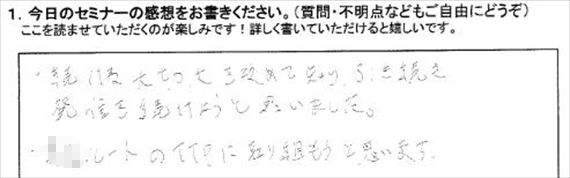 1. 今日のセミナーの感想をお書きください。(質問・不明点などもご自由にどうぞ)
ここを読ませていただくのが楽しみです！詳しく書いていただけると嬉しいです。
・続ける大切さを改めて知り、引き続き
発信を続けようと思いました。
・ルートのTTPに取り組もうと思います。